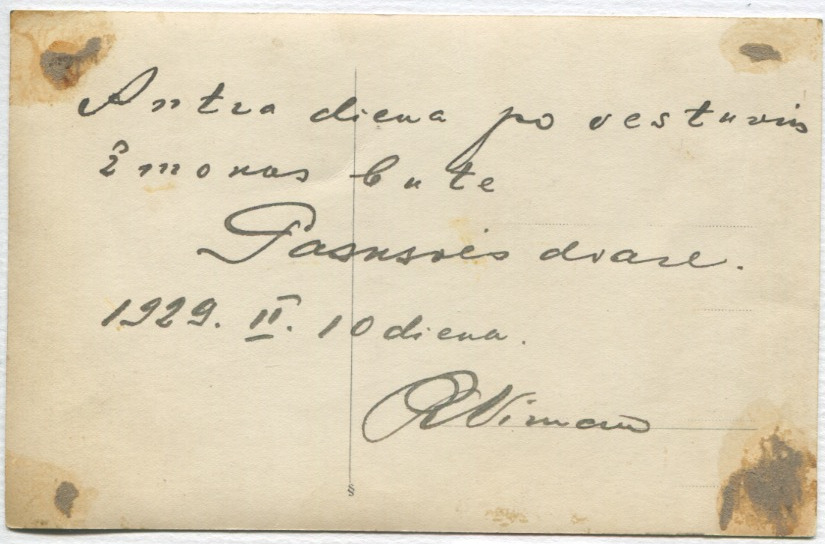 Antra diena po vestuvių
žmonos bute
Pasusvės dvare.
1929. II. 10 diena.